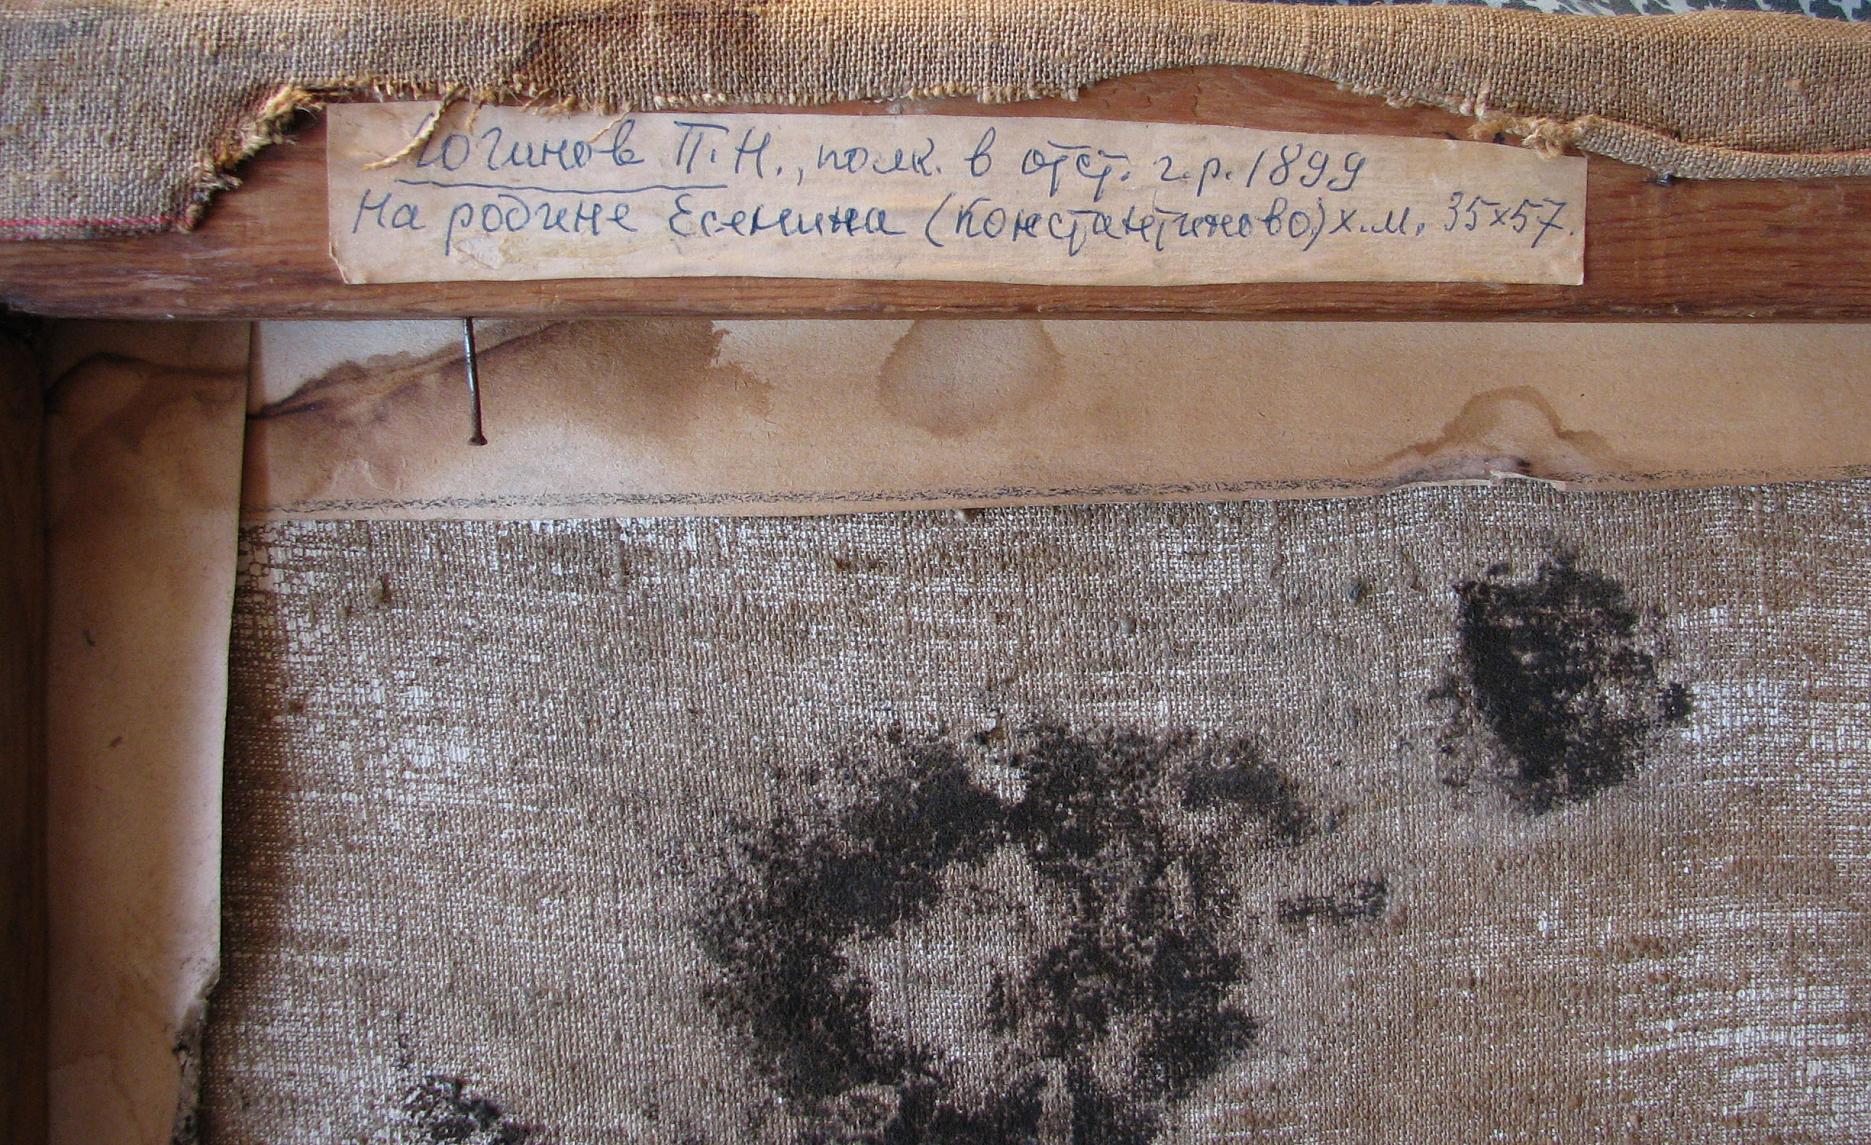 Логинов П.Н., полк. в отст. г.р. 1899
На родине Есенина (Константиново) х.м. 35x57.